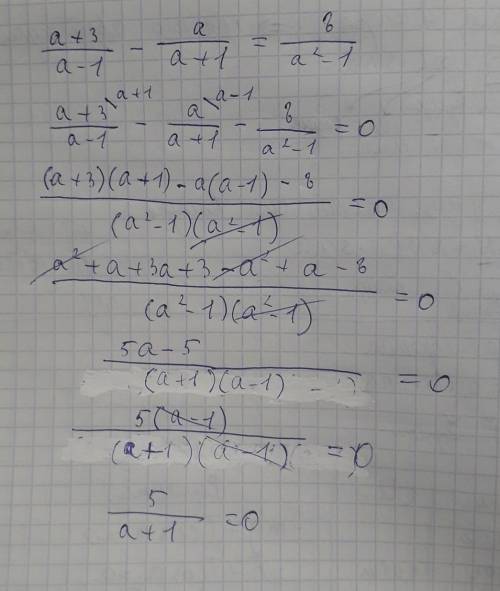 (a+3)/(a-1) - a/(a+1) = 8/(a²-1)
(a+3\a+1)/(a-1) - (a\a-1)/(a+1) - 8/(a²-1) = 0
((a+3)(a+1) - a(a-1) - 8)/((a²-1)(a²-1)) = 0
(a² + a + 3a + 3 - a² + a - 8)/((a²-1)(a²-1)) = 0
(5a-5)/((a+1)(a-1)) = 0
(5(a-1))/((a+1)(a-1)) = 0
5/(a+1) = 0